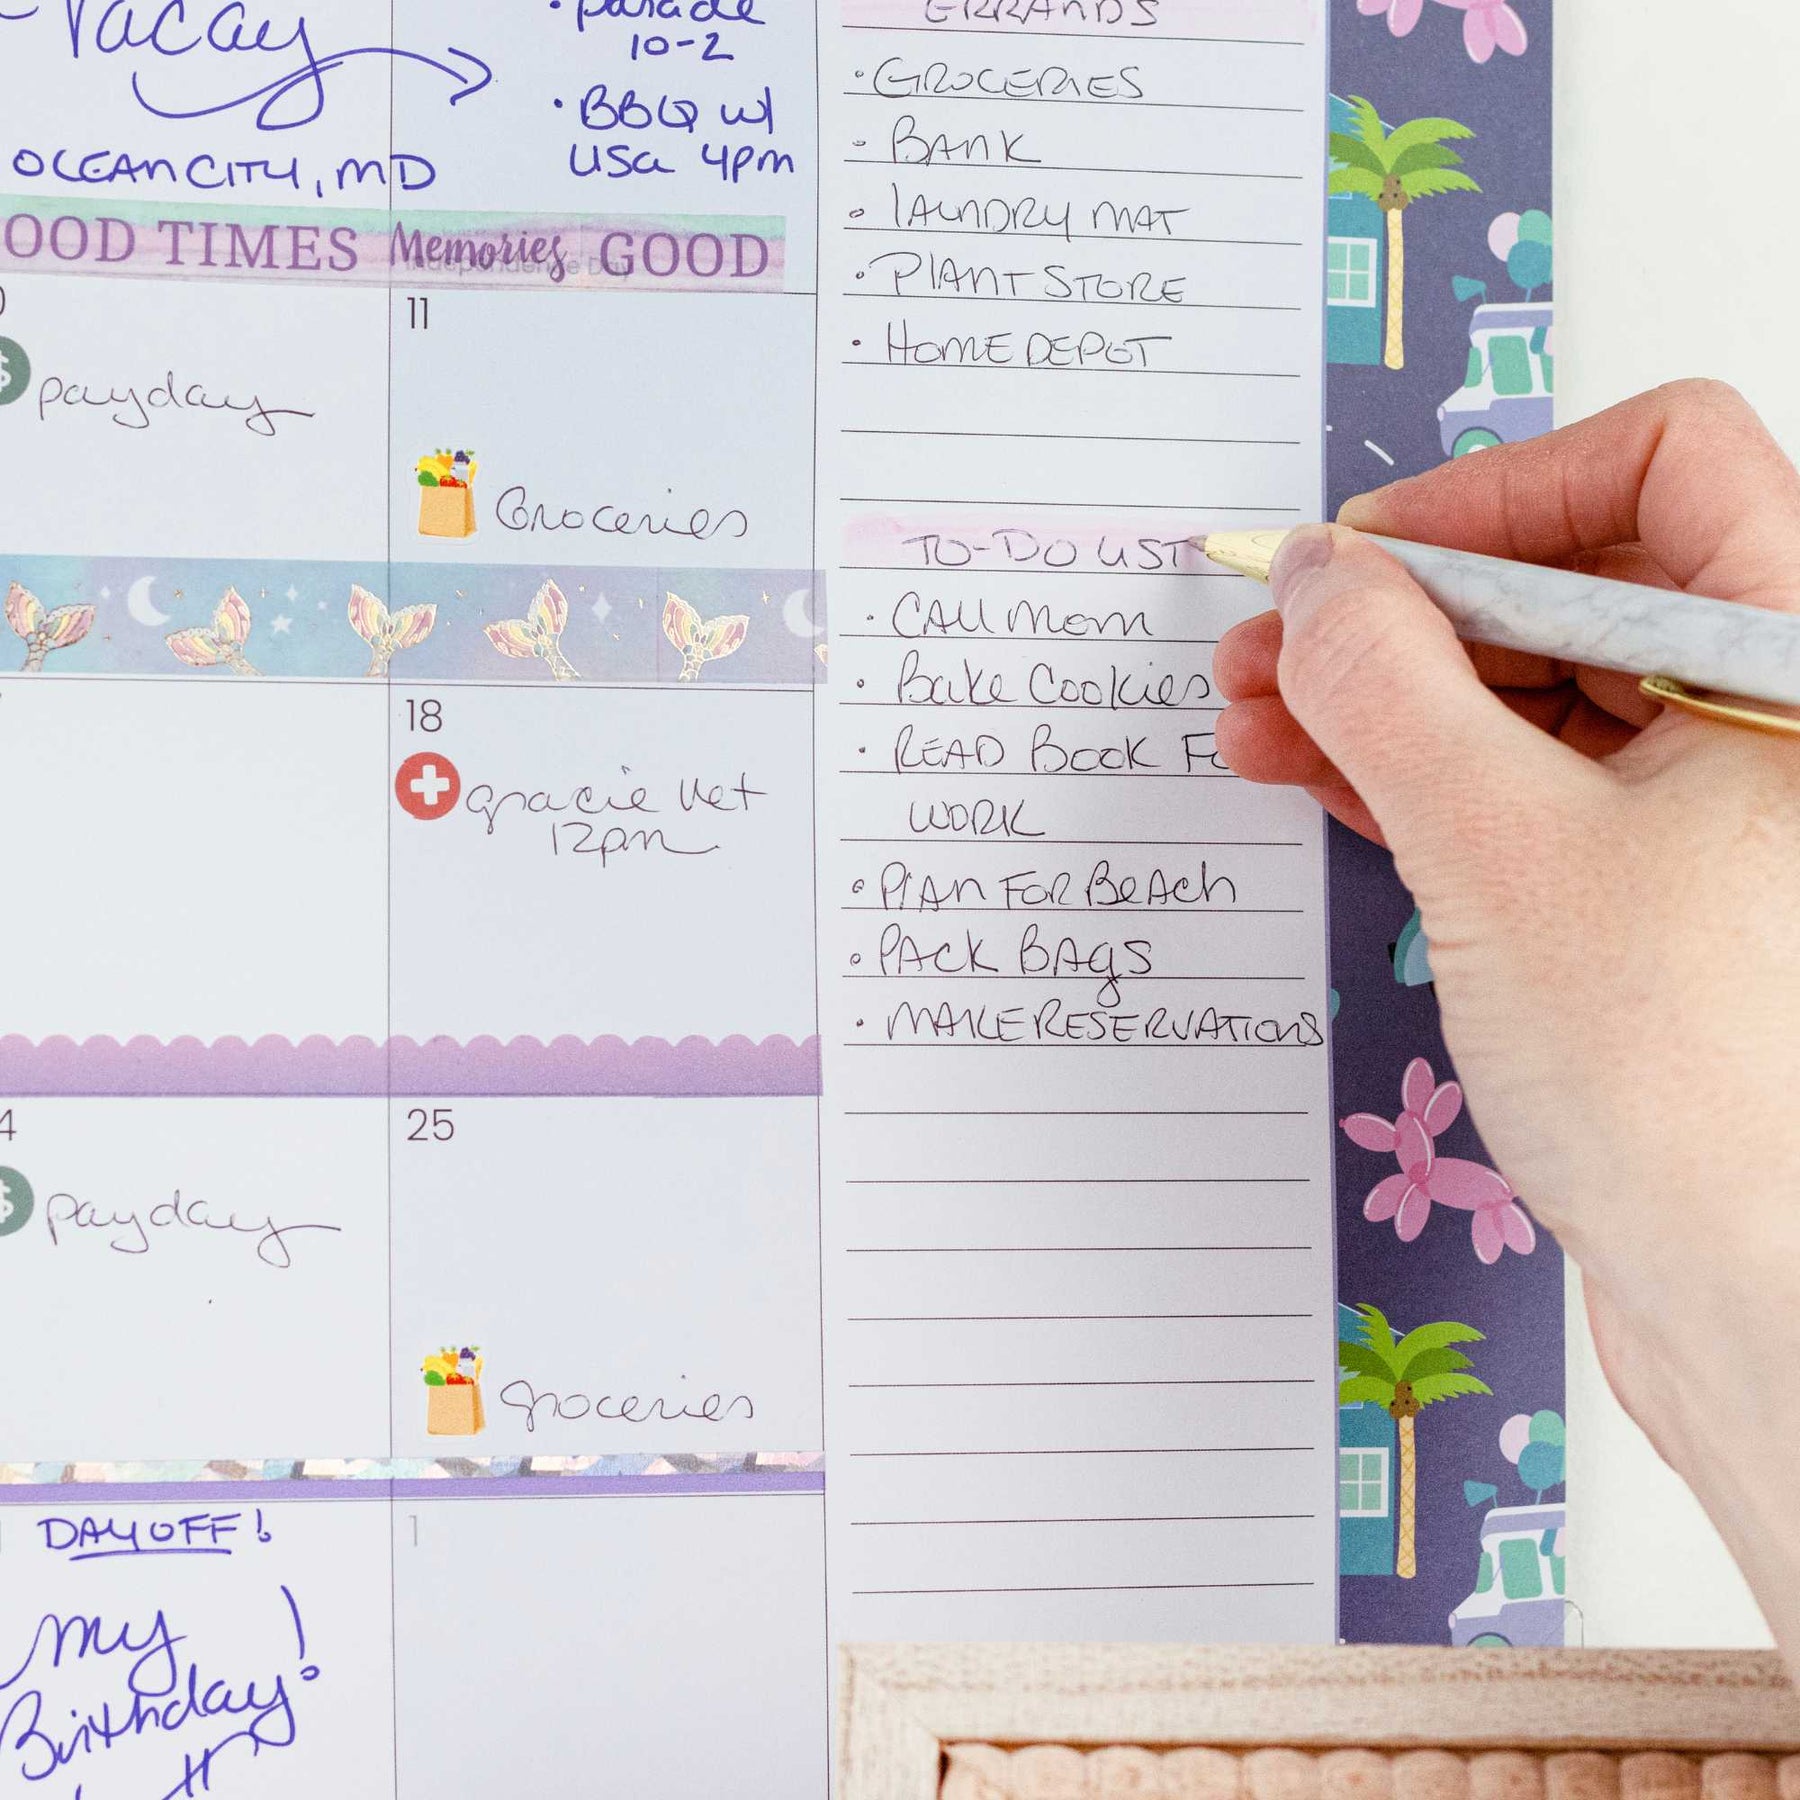 Vacay
OCEAN CITY, MD
• parade
10-2
• BBQ w/
USA 4pm
OOD TIMES Memories GOOD
Independence Day
$ payday
11
Groceries
18
gracie vet
12pm
$ payday
25
groceries
DAY OFF!
my
Birthday!
1
ERRANDS
• GROCERIES
• BANK
• LAUNDRY MAT
• PLANT STORE
• HOME DEPOT
TO-DO LIST
• CALL MOM
• Bake Cookies
• READ BOOK FO
WORK
• PLAN FOR BEACH
• PACK BAGS
• MAKE RESERVATIONS